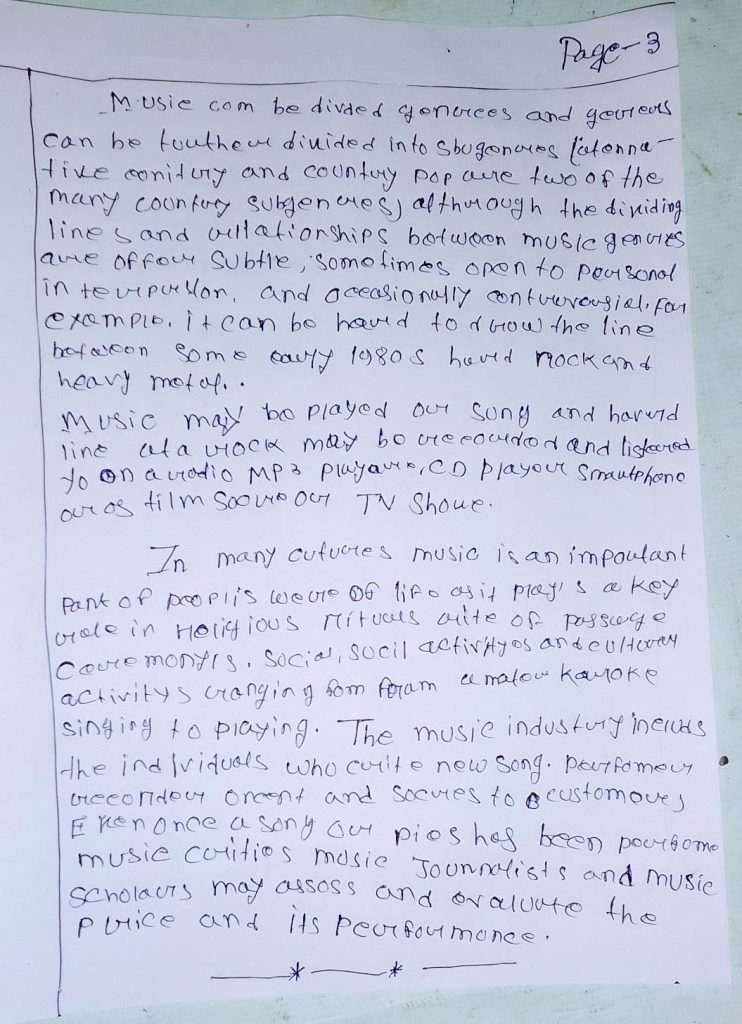 Page-3
Music com be divded genercees and gevrers
can be fuuther divided into sbugenres (atenna-
tive conitury and country pop are two of the
many country subgenres) although the dividing
lines and rellationships between music genres
are offer subtle, sometimes open to personal
interpurlon. and occasionally contuvrousial. For
example. it can be hard to drow the line
between some early 1980s hard rock and
heavy metal..
Music may be played our sung and harurd
line at a rock may be recourded and listened
to on a rodio MP3 playare, CD player Smartphone
or os film soore our TV Shoue.
In many cutures music is an impoutant
Part of peoplis were OG life as it play's a key
role in religious rituals rite of passage
Ceremonyis. Social, socil activityes and cultural
activitys ranging fom foram amatour karoke
singing to playing. The music industury incluts
the individuals who curite new song. Perfomer
recorder orcent and socures to customoves
Even once a song our pios has been perfome
music critics music Journalists and music
Scholars may assoss and evaluate the
Purice and its Peurfourmonce.